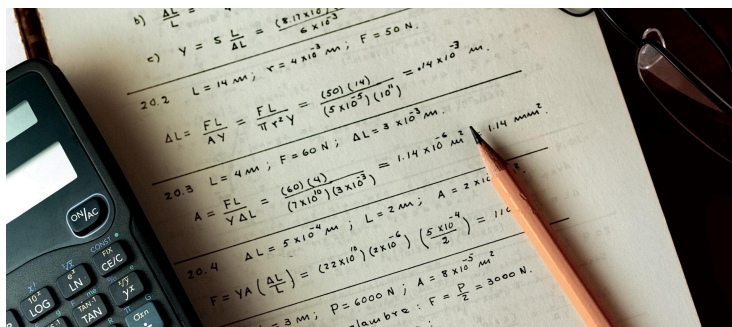 b) ΔL/L =
c) Y = S L/ΔL = (8.17×10 / 6×10⁻³
20.2 L = 14 m ; r = 4×10⁻³ m ; F = 50 N.
ΔL = FL/AY = FL/πr²Y = (50)(14)/(5×10⁻⁵)(10¹¹) = .14×10⁻³ m.
20.3 L = 4 m ; F = 60 N ; ΔL = 3×10⁻³ m.
A = FL/YΔL = (60)(4)/(7×10¹⁰)(3×10⁻³) = 1.14×10⁻⁶ m² = 1.14 mm².
20.4 ΔL = 5×10⁻⁴ m ; L = 2 m ; A = 2×10
F = YA(ΔL/L) = (22×10¹⁰)(2×10⁻⁶)(5×10⁻⁴/2) = 110
= 3 m ; P = 6000 N ; A = 8×10⁻⁵ m²
alambre : F = P/2 = 3000 N.
ON/AC
CONST
FIX
CE/C
x!
10ˣ
LOG
eˣ
LN
TAN⁻¹
TAN
yˣ
σxn
÷